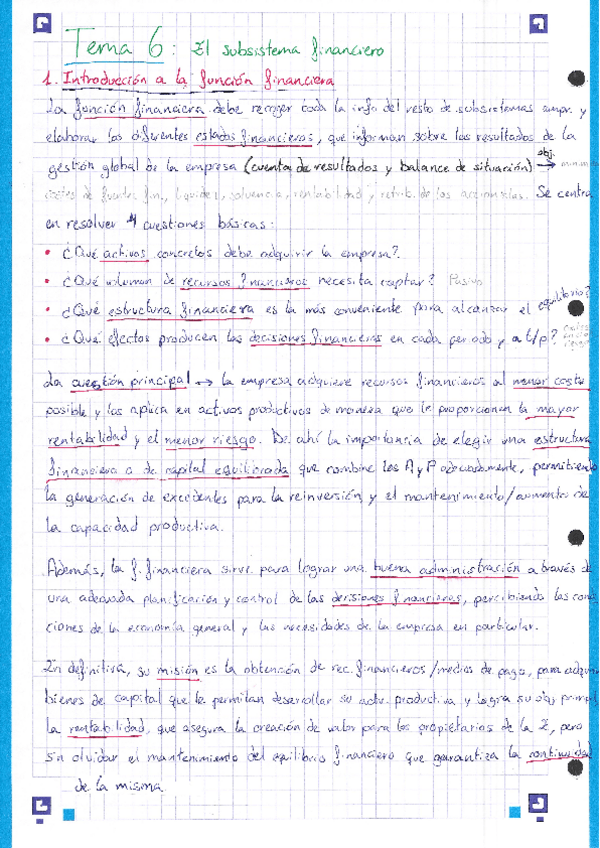 Tema 6: El subsistema financiero
1. Introducción a la función financiera
La función financiera debe recoger toda la info del resto de subsistemas empr. y
elaborar los diferentes estados financieros, que informan sobre los resultados de la
gestión global de la empresa (cuenta de resultados y balance de situación) obj. →
costes de fuentes fin., liquidez, solvencia, rentabilidad y retrib. de los accionistas. Se centra
en resolver 4 cuestiones básicas:
• ¿Qué activos concretos debe adquirir la empresa?
• ¿Qué volumen de recursos financieros necesita captar? Pasivo
• ¿Qué estructura financiera es la más conveniente para alcanzar el equilibrio?
• ¿Qué efectos producen las decisiones financieras en cada periodo y a l/p?
La cuestión principal → la empresa adquiere recursos financieros al menor coste
posible y los aplica en activos productivos de manera que le proporcionen la mayor
rentabilidad y el menor riesgo. De ahí la importancia de elegir una estructura
financiera o de capital equilibrada que combine los A y P adecuadamente, permitiendo
la generación de excedentes para la reinversión y el mantenimiento/aumento de
la capacidad productiva.
Además, la f. financiera sirve para lograr una buena administración a través d
una adecuada planificación y control de las decisiones financieras, percibiendo las con
ciones de la economía general y las necesidades de la empresa en particular.
En definitiva, su misión es la obtención de rec. financieros/medios de pago, para adqui
bienes de capital que le permitan desarrollar su activ. productiva y logra su obj principal
la rentabilidad, que asegura la creación de valor para los propietarios de la E, pero
sin olvidar el mantenimiento del equilibrio financiero que garantiza la continuidad
de la misma.